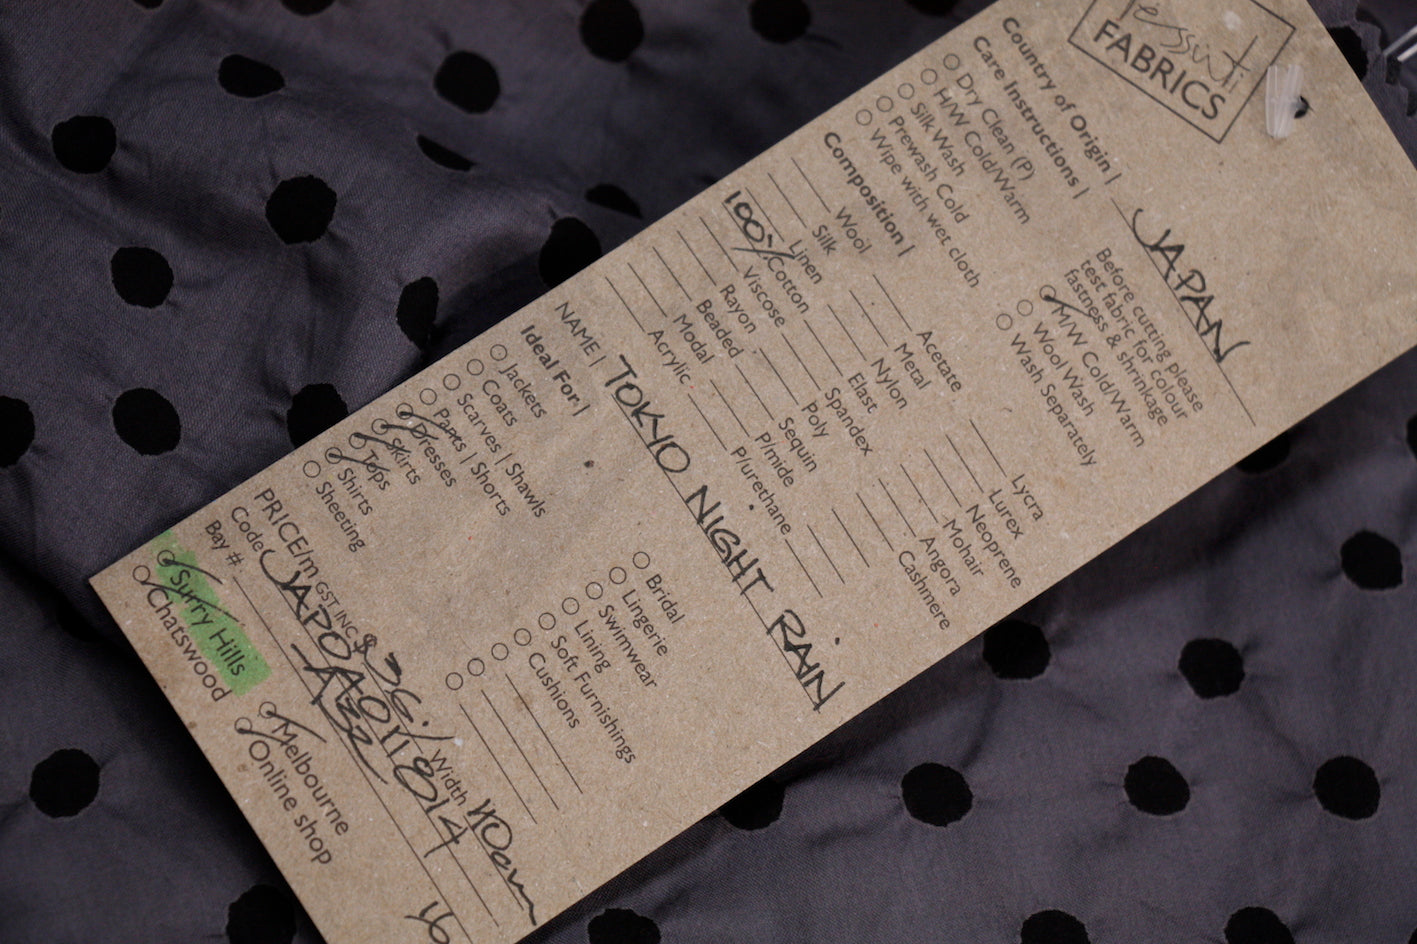 Tessuti
FABRICS
Country of Origin | JAPAN
Care Instructions |
Dry Clean (P)
H/W Cold/Warm
Silk Wash
Prewash Cold
Wipe with wet cloth
Before cutting please
test fabric for colour
fastness & shrinkage
M/W Cold/Warm
Wool Wash
Wash Separately
Composition |
Wool
Silk
Linen
100% Cotton
Viscose
Rayon
Beaded
Modal
Acrylic
Acetate
Metal
Nylon
Elast
Spandex
Poly
Sequin
P/mide
P/urethane
Lycra
Lurex
Neoprene
Mohair
Angora
Cashmere
NAME | TOKYO NIGHT RAIN
Ideal For |
Jackets
Coats
Scarves | Shawls
Pants | Shorts
Dresses
Skirts
Tops
Shirts
Sheeting
Bridal
Lingerie
Swimwear
Lining
Soft Furnishings
Cushions
PRICE/m GST INC $36/ Width 110cm
Code
Bay # A32
Surry Hills
Chatswood
Melbourne
Online shop